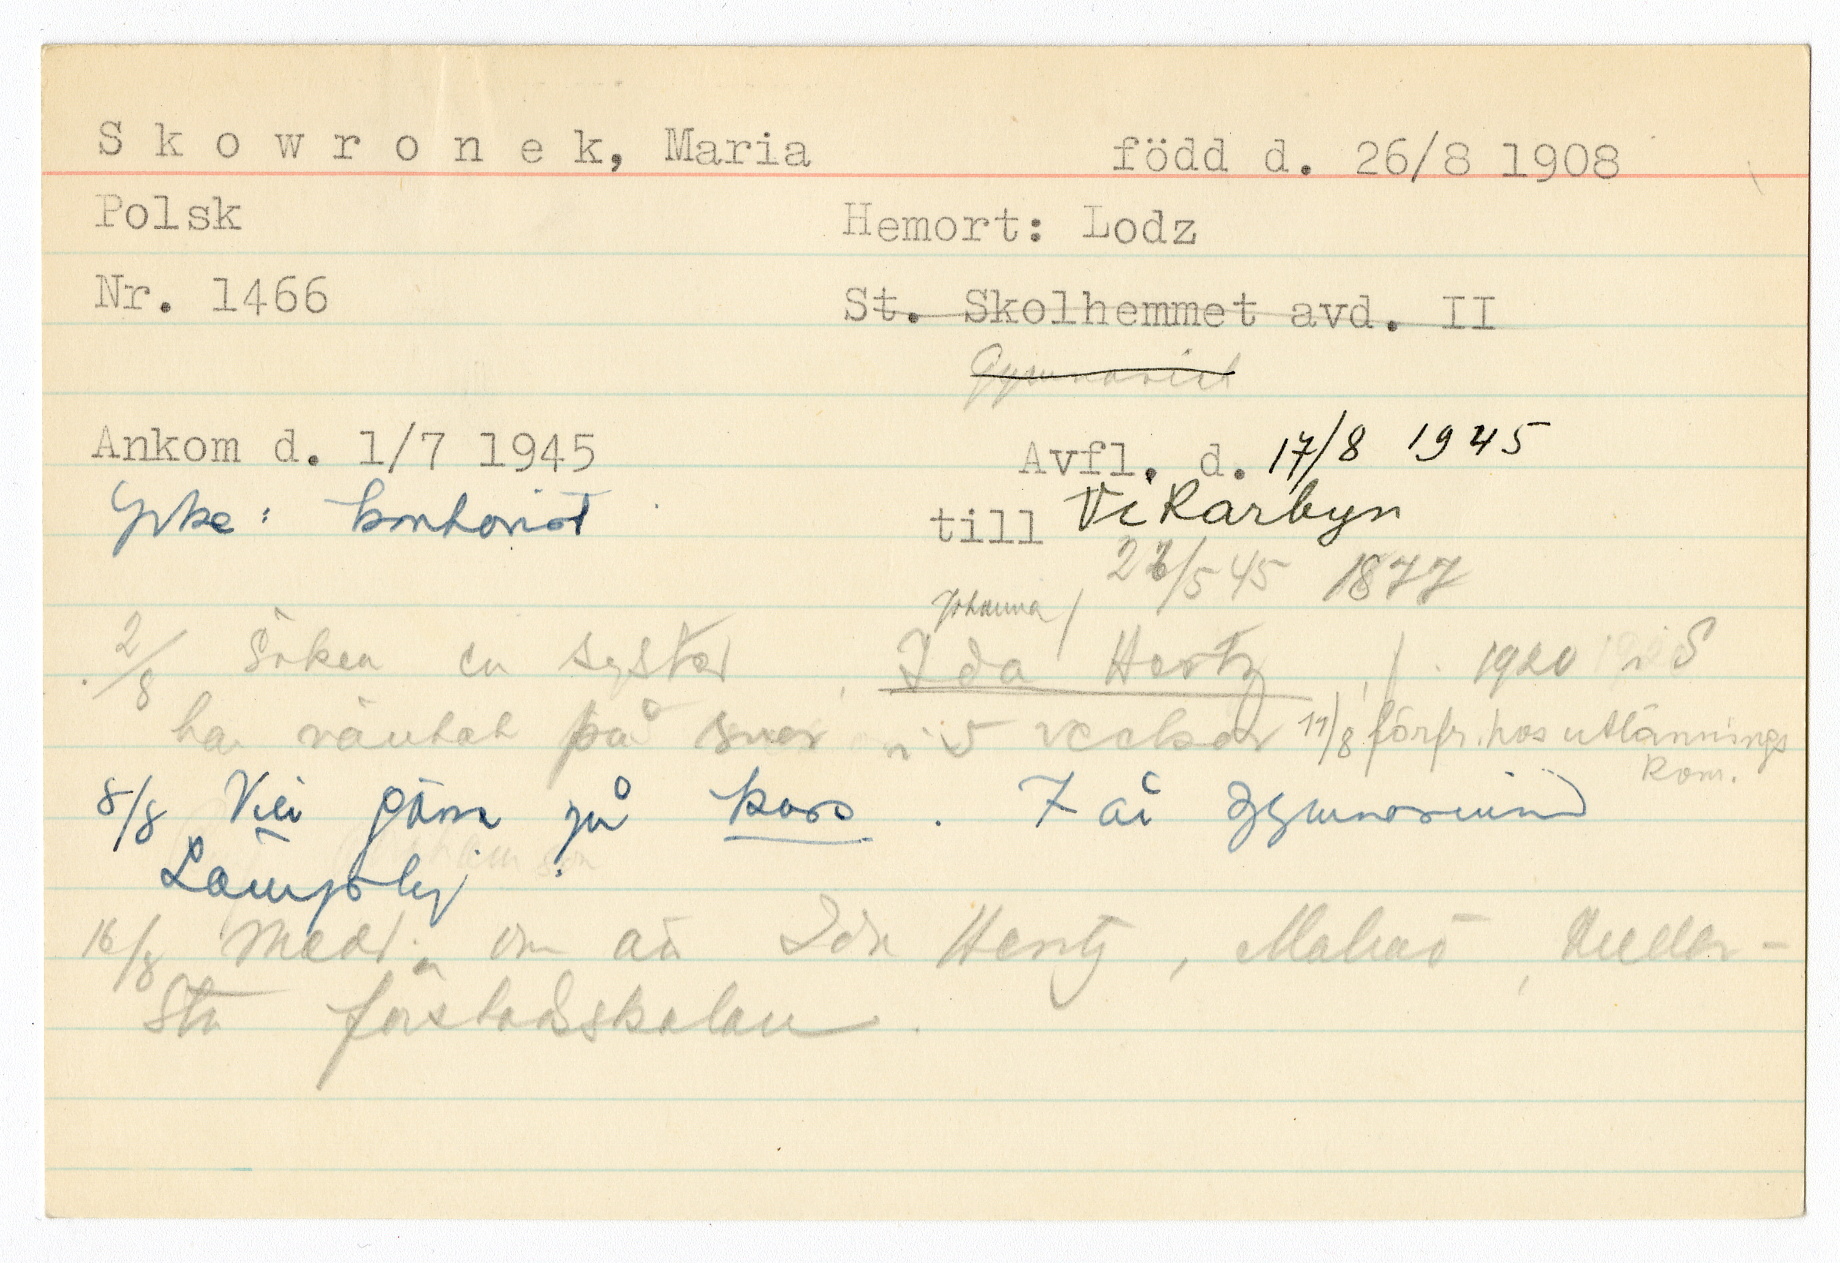 Skowronek, Maria född d. 26/8 1908
Polsk Hemort: Lodz
Nr. 1466 St. Skolhemmet avd. II
Gymnasist
Ankom d. 1/7 1945 Avfl. d. 17/8 1945
Yrke: kontorist till Vikarbyn
/5 45 1877
Johanna/
2/8 Söker en syster Ida Hertz, f. 1920 i S
har väntat på svar i 5 veckor 11/8 förfr. hos utlännings
kom.
8/8 Vill gärna på kurs. 7 år gymnasium
Lämplig
16/8 Medd. om att Ida Hertz, Malmö,
förstadsskolan.